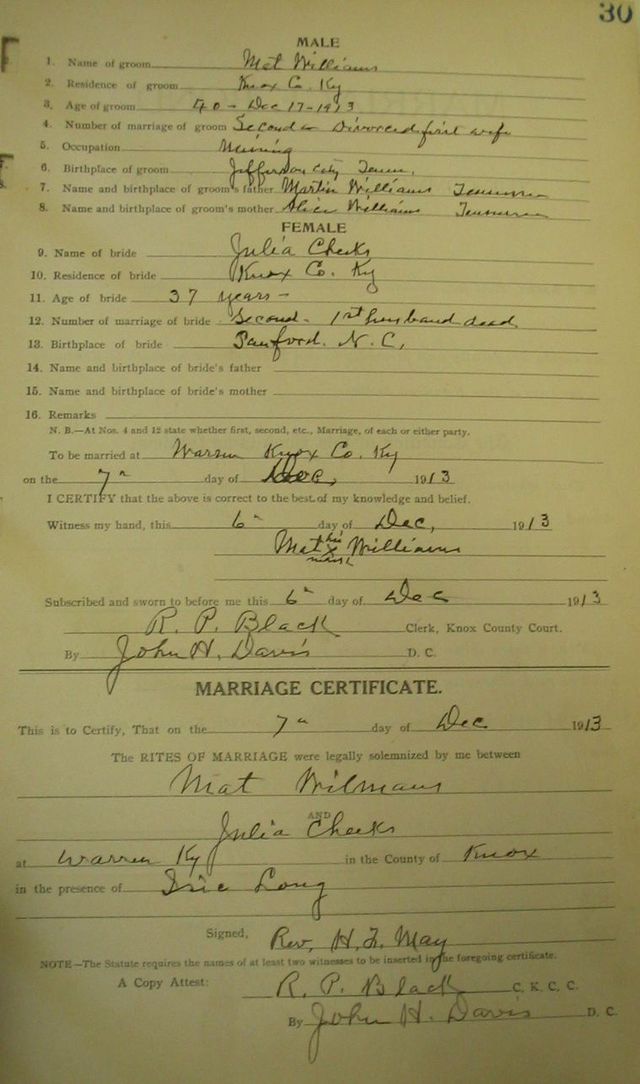 30
MALE
1. Name of groom Mat Williams
2. Residence of groom Knox Co. Ky
3. Age of groom 40 - Dec 17-1913
4. Number of marriage of groom Second - Divorced first wife
5. Occupation Mining
6. Birthplace of groom Jefferson City Tenn.
7. Name and birthplace of groom's father Martin Williams Tennessee
8. Name and birthplace of groom's mother Alice Williams Tennessee
FEMALE
9. Name of bride Julia Cheeks
10. Residence of bride Knox Co. Ky
11. Age of bride 37 years -
12. Number of marriage of bride Second - 1st husband dead
13. Birthplace of bride Sanford. N. C,
14. Name and birthplace of bride's father
15. Name and birthplace of bride's mother
16. Remarks
N. B.—At Nos. 4 and 12 state whether first, second, etc., Marriage, of each or either party.
To be married at Warren Knox Co. Ky
on the 7" day of Dec, 1913
I CERTIFY that the above is correct to the best of my knowledge and belief.
Witness my hand, this 6" day of Dec, 1913
Mat his x mark Williams
Subscribed and sworn to before me this 6" day of Dec 1913
R. P. Black Clerk, Knox County Court.
By John H. Davis D. C.
MARRIAGE CERTIFICATE.
This is to Certify, That on the 7" day of Dec 1913
The RITES OF MARRIAGE were legally solemnized by me between
Mat Wilmans
AND
Julia Cheeks
at Warren Ky in the County of Knox
in the presence of Long
Signed, Rev, H. F. May
NOTE—The Statute requires the names of at least two witnesses to be inserted in the foregoing certificate.
A Copy Attest: R. P. Black C. K. C. C.
By John H. Davis D. C.